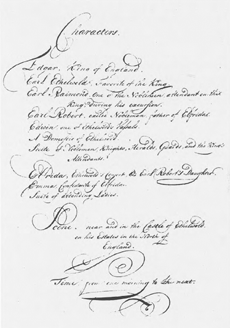 Characters.
Edgar, King of England.
Earl Ethelwold, Favorite of the King
Earl Raimond, one of the Noblemen attendant on this
King during his excursion.
Earl Robert, noble Nobleman, father of Elfrida
Edwin, one of Ethelwold's Vassals
A Domestic of Ethelwold
Suite of Noblemen Knights, Heralds, Guards, and the King's
Attendants.
Elfrida, Ethelwold's and Earl Robert's Daughter,
Emma, Confidante of Elfrida.
Suite of attending Ladies.
Scene, near and in the Castle of Ethelwold,
in his Estates in the North of
England.
Time, from one morning to the next.